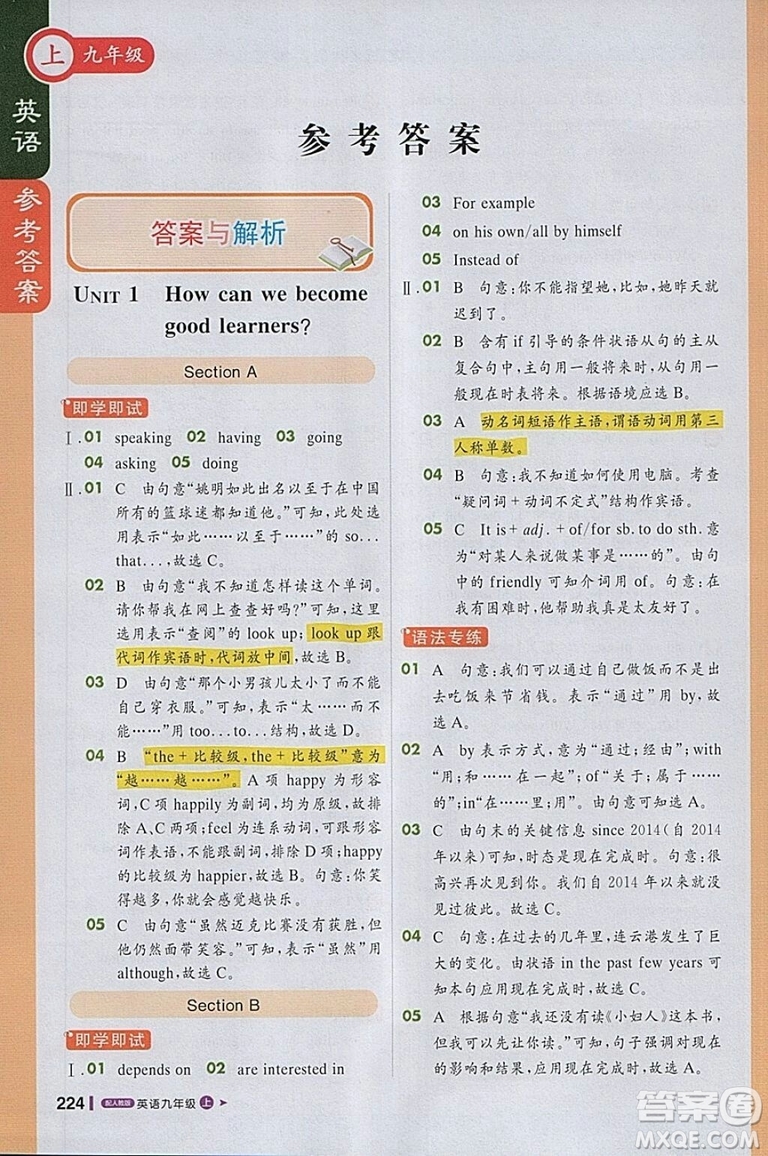 上 九年级
英语
参考答案
参考答案
答案与解析
UNIT 1 How can we become
good learners?
Section A
即学即试
Ⅰ.01 speaking 02 having 03 going
04 asking 05 doing
Ⅱ.01 C 由句意“姚明如此出名以至于在中国
所有的篮球迷都知道他。”可知,此处选
用表示“如此……以至于……”的 so…
that…,故选 C。
02 B 由句意“我不知道怎样读这个单词。
请你帮我在网上查查好吗?”可知,这里
选用表示“查阅”的 look up; look up 跟
代词作宾语时,代词放中间,故选 B。
03 D 由句意“那个小男孩儿太小了而不能
自己穿衣服。”可知,此处表示“太……而
不能……”用 too…to…结构,故选 D。
04 B “the + 比较级, the + 比较级”意为
“越……越……”。A 项 happy 为形容
词,C 项 happily 为副词,均为原级,故排
除 A、C 两项;feel 为连系动词,可跟形容
词作表语,不跟副词,排除 D 项;happy
的比较级为 happier,故选 B。句意:你笑
得越多,你就会感觉越快乐。
05 C 由句意“虽然迈克比赛没有获胜,但
他仍然面带笑容。”可知,表示“虽然”用
although,故选 C。
Section B
即学即试
Ⅰ.01 depends on 02 are interested in
03 For example
04 on his own/all by himself
05 Instead of
Ⅱ.01 B 句意:你不能指望她,比如,她昨天就
迟到了。
02 B 含有 if 引导的条件状语从句的主从
复合句中,主句用一般将来时,从句用一
般现在时表将来。根据语境应选 B。
03 A 动名词短语作主语,谓语动词用第三
人称单数。
04 B 句意:我不知道如何使用电脑。考查
“疑问词 + 动词不定式”结构作宾语。
05 C It is + adj. + of/for sb. to do sth.意
为“对某人来说做某事是……的”。由句
中的 friendly 可知介词用 of。句意:在
我有困难时,他真是太友好了。
语法专练
01 A 句意:我们可以通过自己做饭而不是出
去吃饭来节省钱。表示“通过”用 by,故
选 A。
02 A by 表示方式,意为“通过;经由”;with
“和……在一起”;of“关于;属于……
的”;in“在……里;用”。故选 A。
03 C 由句末的关键信息 since 2014(自 2014
年以来)可知,时态是现在完成时。句意:很
高兴再次见到你。我们自 2014 年以来就
没有见过面了。故选 C。
04 C 句意:在过去的几年里,连云港发生了巨
大的变化。由状语 in the past few years 可
知本句应用现在完成时,故选 C。
05 A 根据句意“我还没有读《小妇人》这本书,
但你可以先让你读。”可知,句子强调对现在
的影响和结果,应用现在完成时,故选 A。
224 配人教版 英语九年级 上
答案圈
MXQE.COM